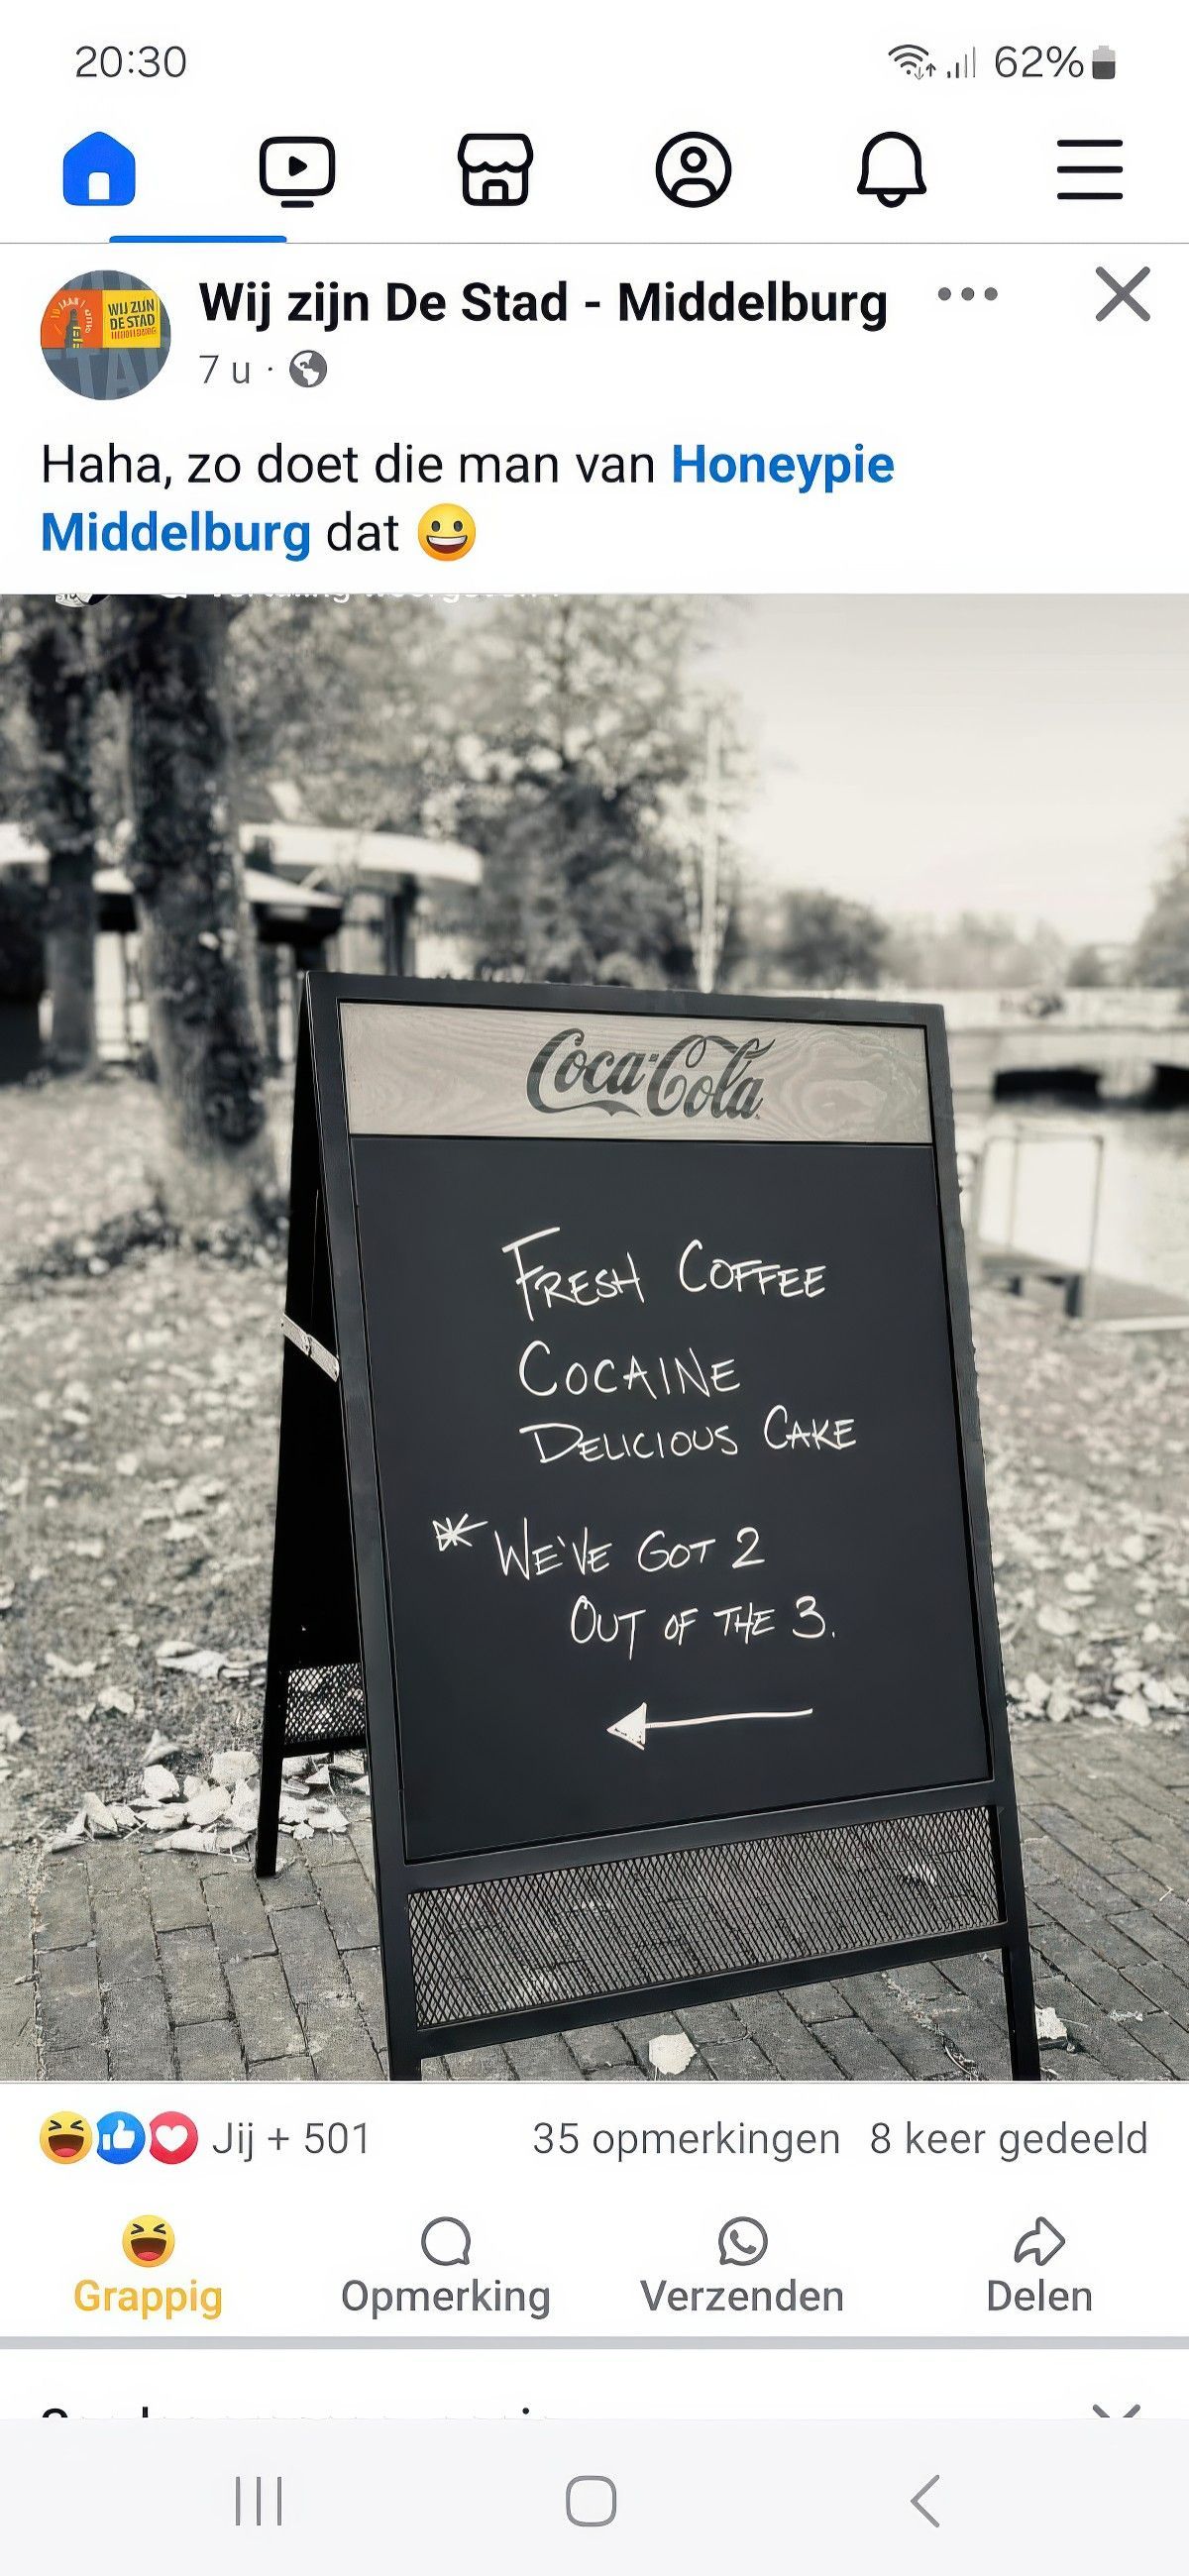 20:30
62%
Wij zijn De Stad - Middelburg
7 u ·
WIJ ZIJN
DE STAD
MIDDELBURG
Haha, zo doet die man van Honeypie
Middelburg dat 😀
Coca-Cola
FRESH COFFEE
COCAINE
DELICIOUS CAKE
* WE'VE GOT 2
OUT OF THE 3.
Jij + 501
35 opmerkingen
8 keer gedeeld
Grappig
Opmerking
Verzenden
Delen